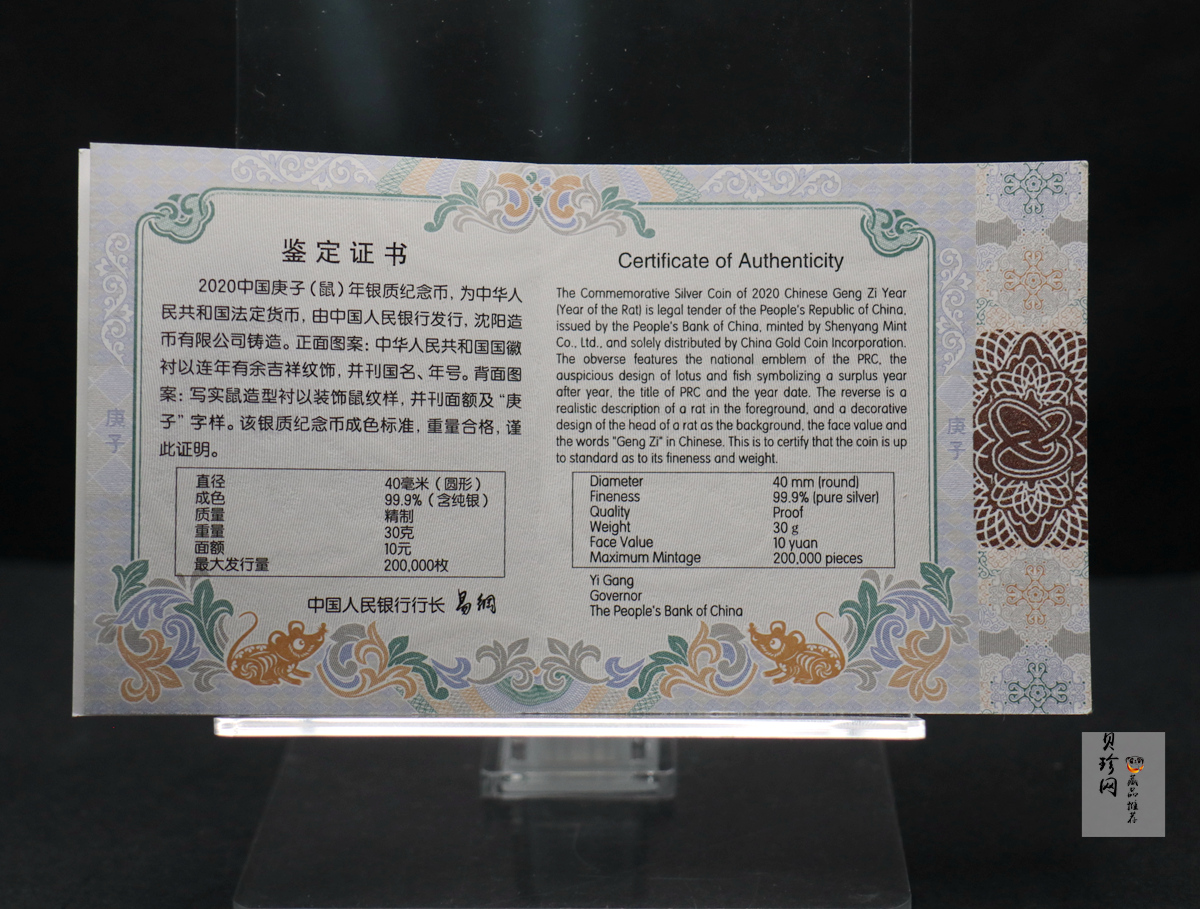 鉴定证书
2020中国庚子（鼠）年银质纪念币，为中华人
民共和国法定货币，由中国人民银行发行，沈阳造
币有限公司铸造。正面图案：中华人民共和国国徽
衬以连年有余吉祥纹饰，并刊国名、年号。背面图
案：写实鼠造型衬以装饰鼠纹样，并刊面额及“庚
子”字样。该银质纪念币成色标准，重量合格，谨
此证明。
直径 40毫米（圆形）
成色 99.9%（含纯银）
质量 精制
重量 30克
面额 10元
最大发行量 200,000枚
中国人民银行行长 易纲
庚子
Certificate of Authenticity
The Commemorative Silver Coin of 2020 Chinese Geng Zi Year
(Year of the Rat) is legal tender of the People's Republic of China,
issued by the People's Bank of China, minted by Shenyang Mint
Co., Ltd., and solely distributed by China Gold Coin Incorporation.
The obverse features the national emblem of the PRC, the
auspicious design of lotus and fish symbolizing a surplus year
after year, the title of PRC and the year date. The reverse is a
realistic description of a rat in the foreground, and a decorative
design of the head of a rat as the background, the face value and
the words "Geng Zi" in Chinese. This is to certify that the coin is up
to standard as to its fineness and weight.
Diameter 40 mm (round)
Fineness 99.9% (pure silver)
Quality Proof
Weight 30 g
Face Value 10 yuan
Maximum Mintage 200,000 pieces
Yi Gang
Governor
The People's Bank of China
庚子
贝珍网
藏品推荐